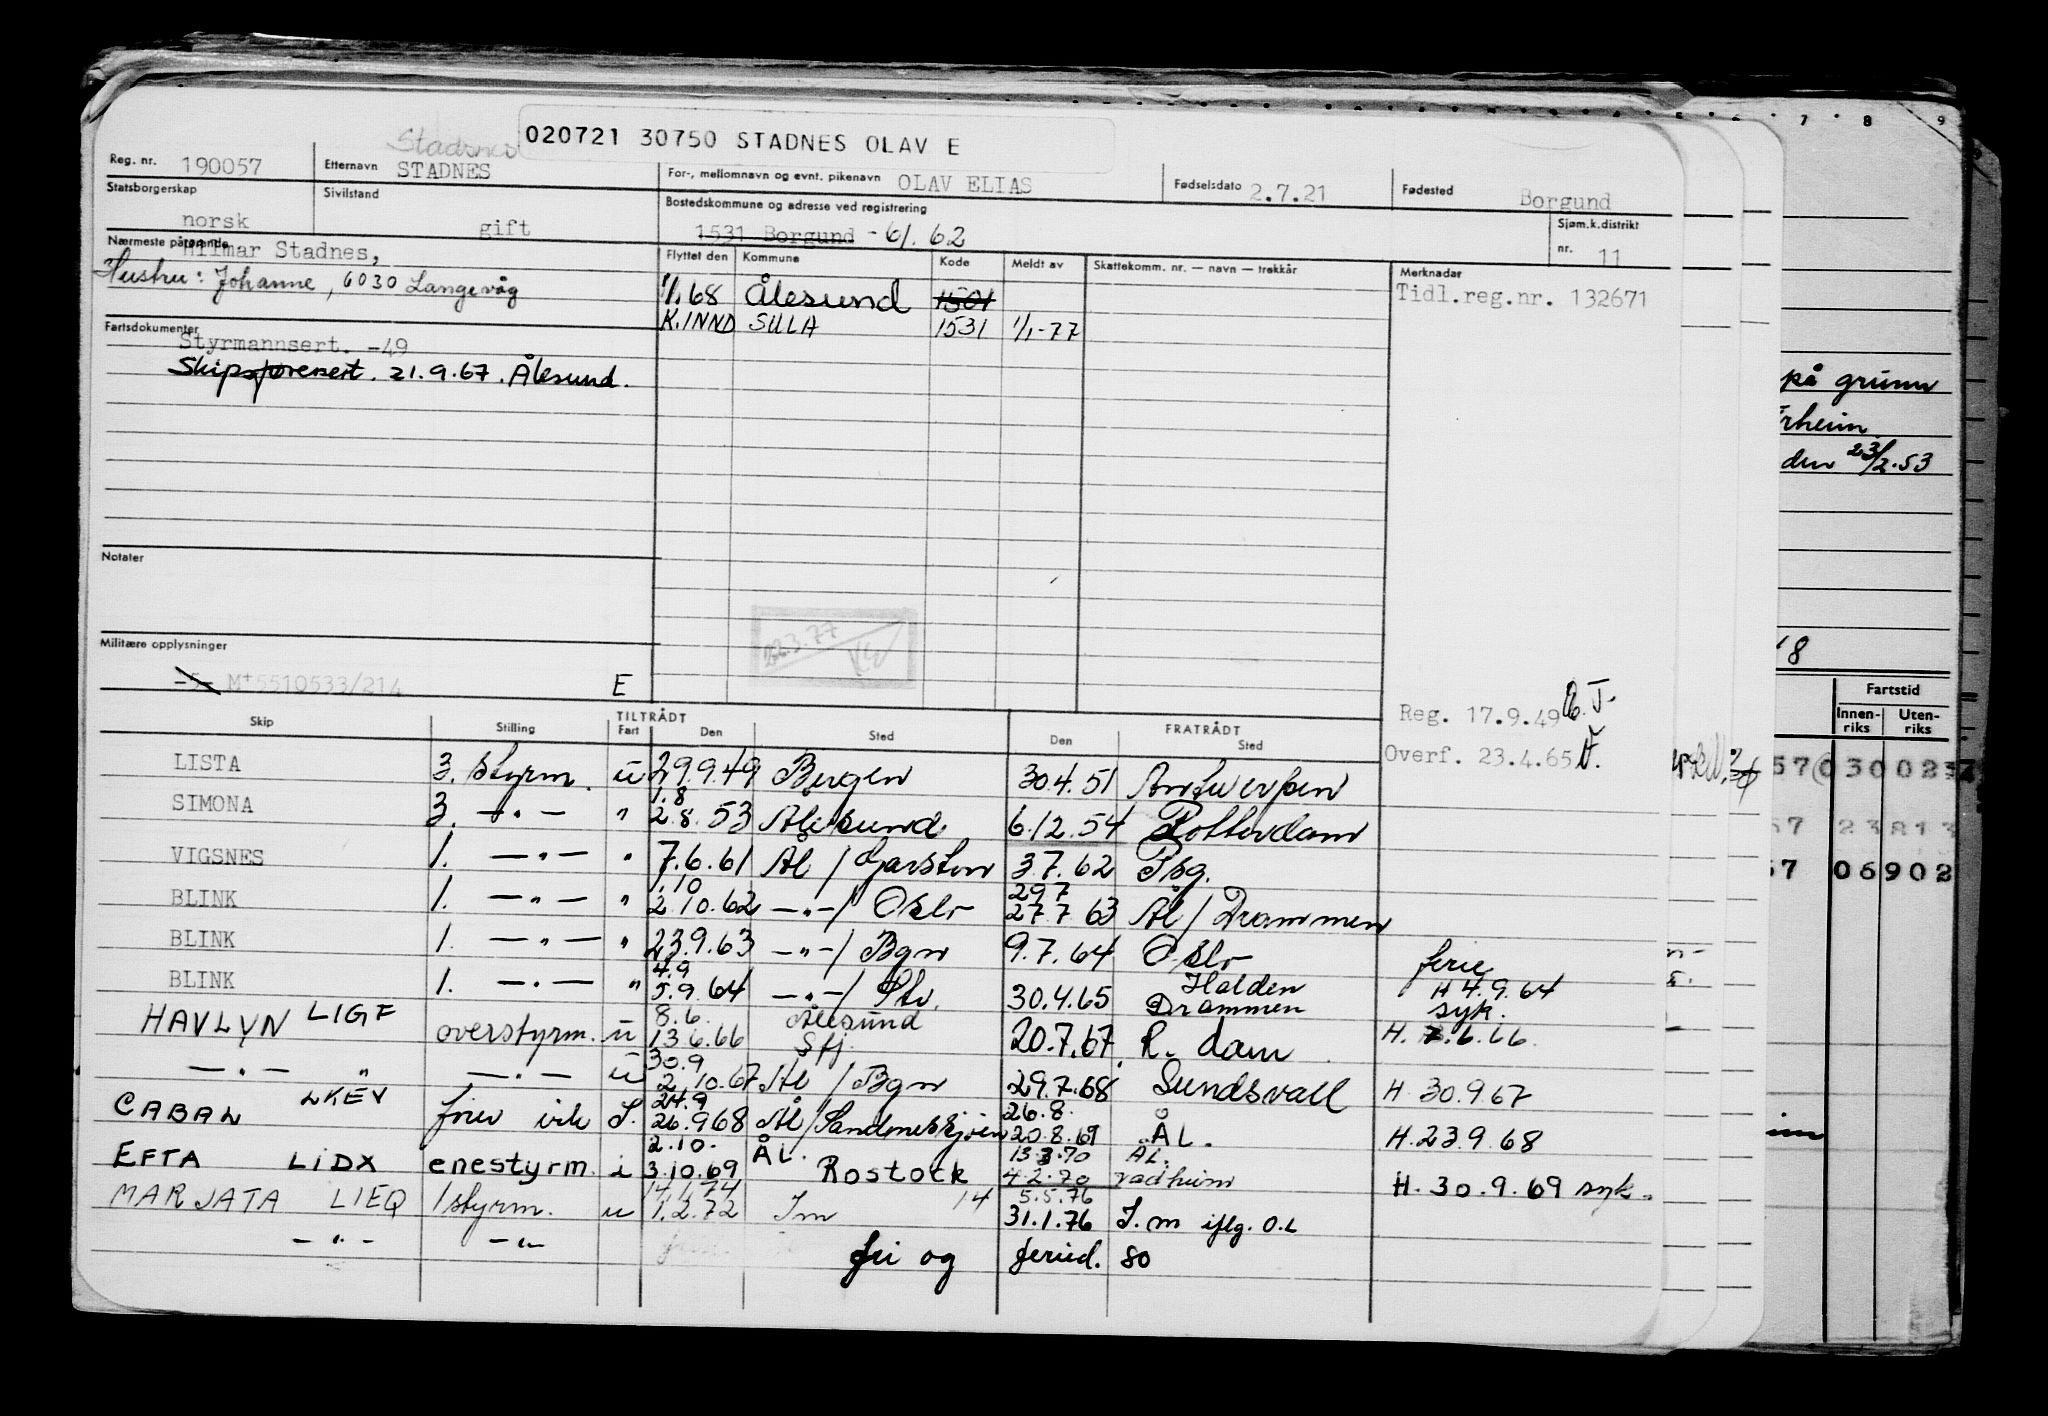 Stadsnes
020721 30750 STADNES OLAV E
Reg. nr. 190057 Etternavn STADNES For-, mellomnavn og evnt. pikenavn OLAV ELIAS Fødselsdato 2.7.21 Fødested Borgund
Statsborgerskap norsk Sivilstand gift Bostedskommune og adresse ved registrering 1531 Borgund - 61.62 Sjøm.k.distrikt nr. 11
Nærmeste pårørende Hilmar Stadnes,
Hustru: Johanne, 6030 Langevåg
Flyttet den Kommune Kode Meldt av Skattekomm. nr. — navn — trekkår Merknader
1/1 68 Ålesund 1501 Tidl.reg.nr. 132671
K.INND SULA 1531 1/1-77
Fartsdokumenter
Styrmannsert. -49
Skipsførersert. 21.9.67. Ålesund.
Notater
22.3.77
Militære opplysninger
-5- M+5510533/214 E
Reg. 17.9.49
Overf. 23.4.65
Skip Stilling TILTRÅDT Fart Den Sted FRATRÅDT Den Sted
LISTA 3. styrm. u 29.9.49 Bergen 30.4.51 Antwerpen
SIMONA 3. —"— " 1.8 2.8.53 Ålesund 6.12.54 Rotterdam
VIGSNES 1. —"— " 7.6.61 Ål / Garston 3.7.62 Tbg.
BLINK 1. —"— " 1.10 2.10.62 —"—/ Oslo 29.7 27.7.63 Ål / Drammen
BLINK 1. —"— " 23.9.63 —"—/ Bgn 9.7.64 Oslo ferie
BLINK 1. —"— " 4.9 5.9.64 —"—/ 30.4.65 Halden Drammen H 4.9.64 syk.
HAVLYN LIGF overstyrm. u 8.6. 13.6.66 Ålesund Sfj. 20.7.67 R.dam H. 7.6.66
—"— " —"— u 30.9 2.10.67 Ål / Bgn 29.7.68 Sundsvall H 30.9.67
CABAL LKEV 24.9 26.9.68 Ål / Sandnessjøen 26.8. 20.8.69 ÅL. H.23.9.68
EFTA LIDX enestyrm. i 2.10. 3.10.69 ÅL. Rostock 13.3.70 4.2.70 ÅL. Vadheim H. 30.9.69 syk.
MARJATA LIEQ 1 styrm. u 14.1.74 1.2.72 Im 14 5.5.76 31.1.76 I.m iflg. O.L
—"— —"— fri og feried. 80
7 8 9
på grunn
den 23/2.53
Fartstid
Innenriks Utenriks
57 03002
57 23813
57 06902